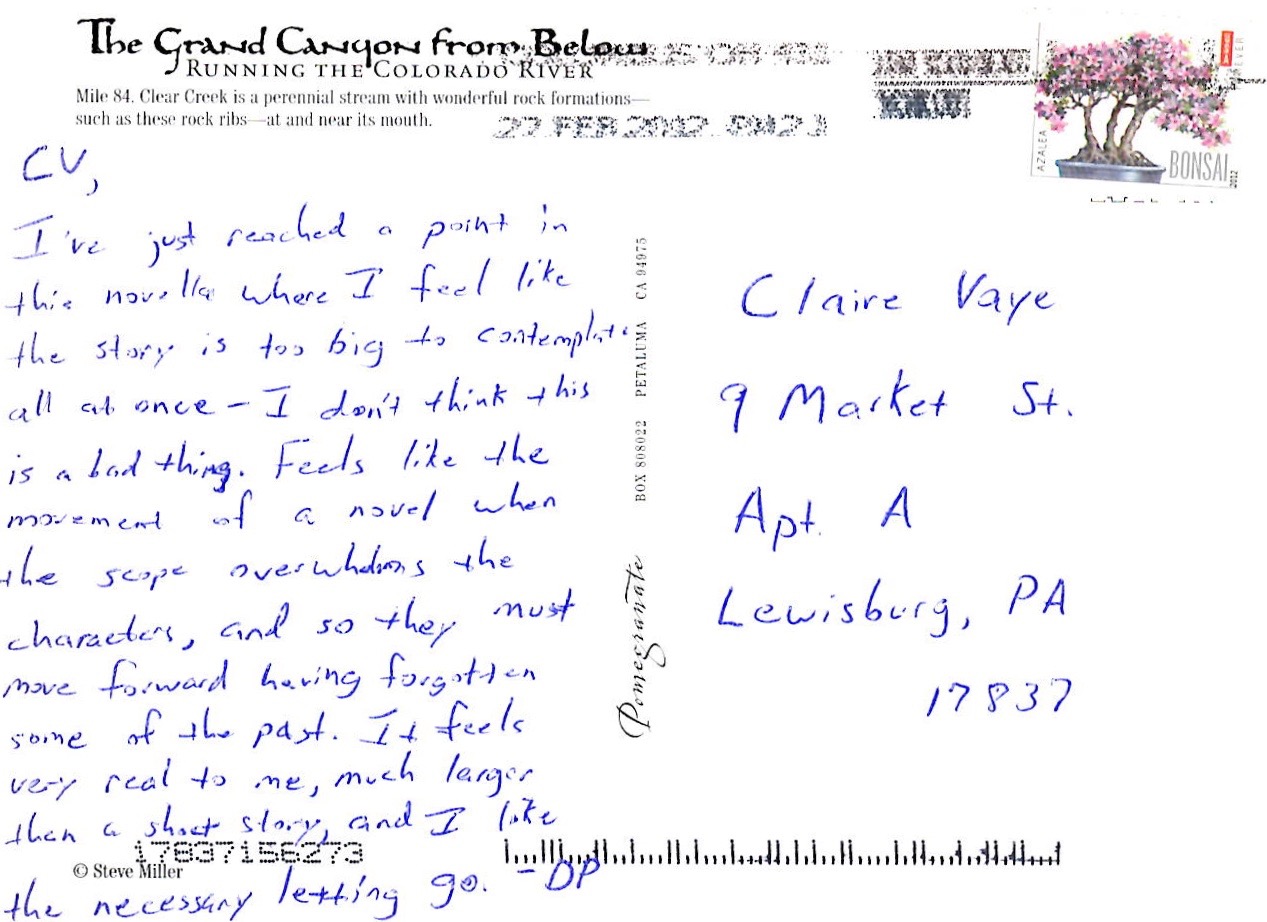 The Grand Canyon from Below
RUNNING THE COLORADO RIVER
Mile 84. Clear Creek is a perennial stream with wonderful rock formations—
such as these rock ribs—at and near its mouth.
27 FEB 2012
AZALEA
BONSAI
2012
FOREVER
CV,
I've just reached a point in
this novella where I feel like
the story is too big to contemplate
all at once – I don't think this
is a bad thing. Feels like the
movement of a novel when
the scope overwhelms the
characters, and so they must
move forward having forgotten
some of the past. It feels
very real to me, much larger
than a short story, and I like
the necessary letting go. – DP
Pomegranate BOX 808022 PETALUMA CA 94975
Claire Vaye
9 Market St.
Apt. A
Lewisburg, PA
17837
17837156273
© Steve Miller